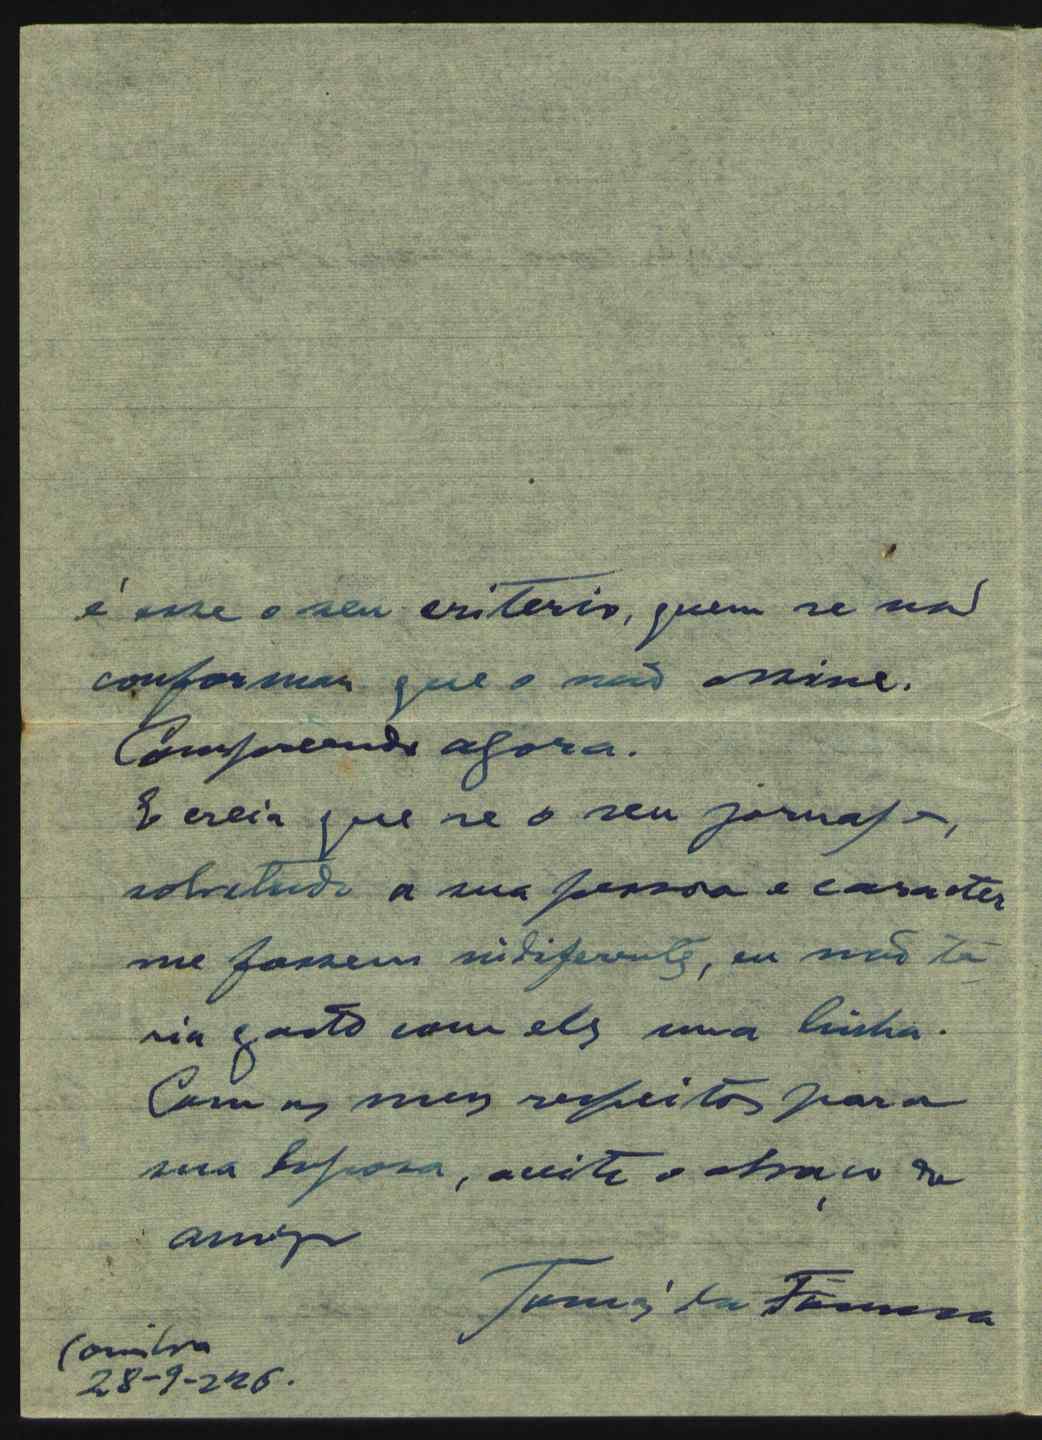 é esse o seu criterio, quem se não
conformar que o não assine.
Compreendo agora.
E creia que se o seu jornal e,
sobretudo a sua pessoa e caracter
me fossem indiferentes, eu não te
ria gasto com eles uma linha.
Com os meus respeitos para
sua Esposa, aceite o abraço do
amigo
Tomás da Fonseca
Coimbra
28-9-